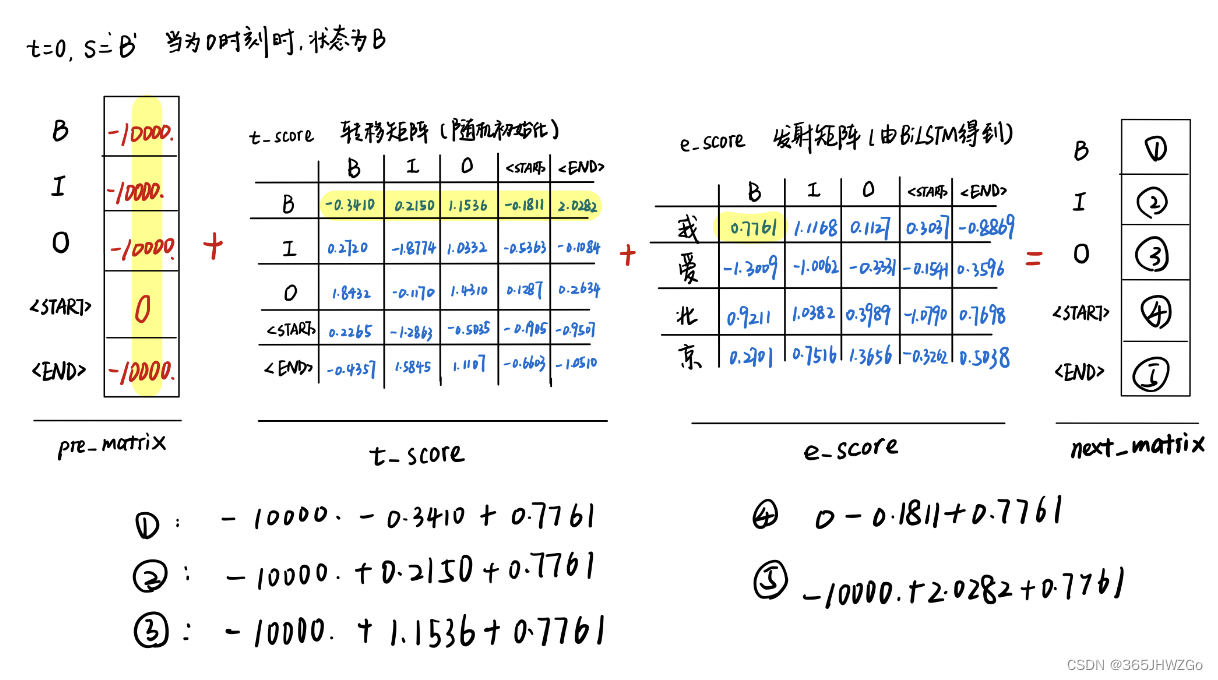 t=0, S='B' 当为0时刻时,状态为B
B -10000.
I -10000.
O -10000.
<START> 0
<END> -10000.
pre_matrix
+
t_score 转移矩阵(随机初始化)
B I O <START> <END>
B -0.3410 0.2150 1.1536 -0.1811 2.0282
I 0.2720 -1.8774 1.0332 -0.5363 -0.1084
O 1.8432 -0.1170 1.4310 0.1287 0.2634
<START> 0.2265 -1.2863 -0.5035 -0.1905 -0.9507
<END> -0.4357 1.5845 1.1107 -0.6603 -1.0510
t_score
+
e_score 发射矩阵(由BiLSTM得到)
B I O <START> <END>
我 0.7761 1.1168 0.1127 0.3037 -0.8869
爱 -1.3009 -1.0062 -0.3331 -0.1541 0.3596
北 0.9211 1.0382 0.3989 -1.0790 0.7698
京 0.2701 0.7516 1.3656 -0.3262 0.5038
e_score
=
B ①
I ②
O ③
<START> ④
<END> ⑤
next_matrix
①: -10000. -0.3410 + 0.7761
②: -10000. +0.2150 + 0.7761
③: -10000. + 1.1536 + 0.7761
④ 0 -0.1811+0.7761
⑤ -10000.+2.0282+0.7761
CSDN @365JHWZGo